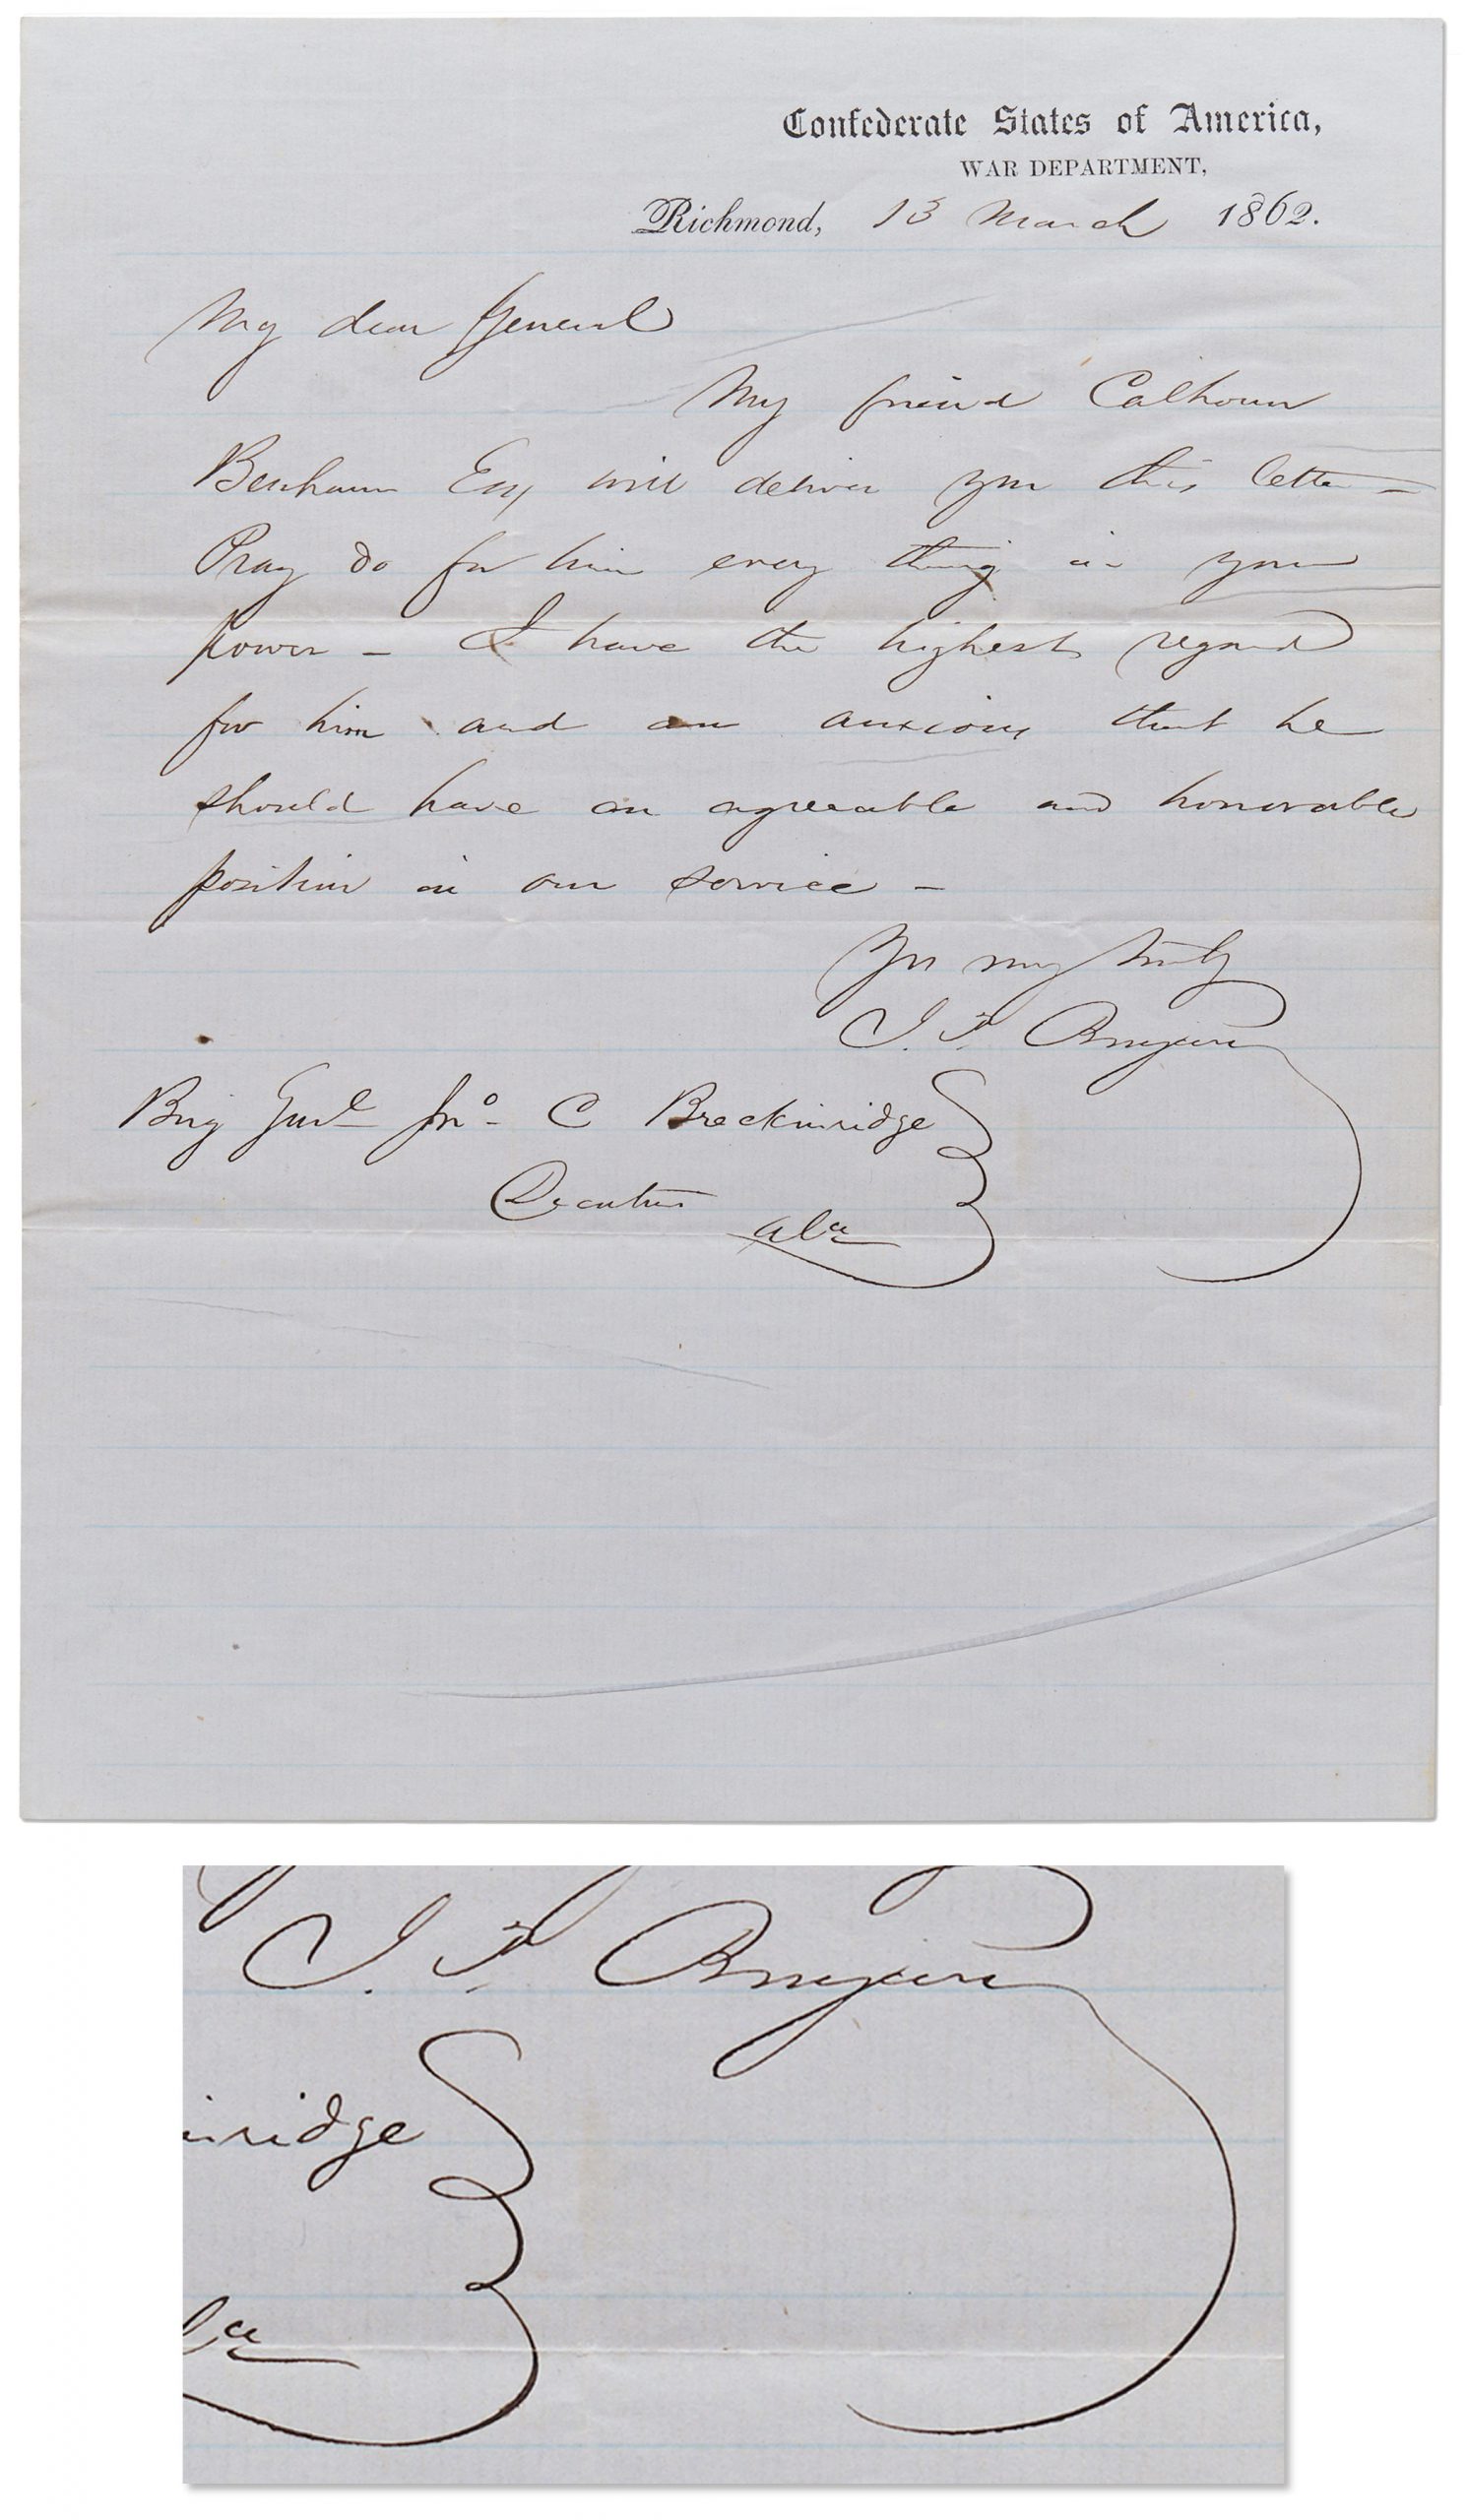 Confederate States of America,
WAR DEPARTMENT,
Richmond, 13 March 1862.
My dear General
My friend Calhoun
Benham Esq will deliver you this letter –
Pray do for him every thing in your
power – I have the highest regard
for him and am anxious that he
should have an agreeable and honorable
position in our service –
Yrs very truly
J. P. Benjamin
Brig Genl Jno. C Breckinridge
Decatur
Ala
J. P. Benjamin
inridge
la